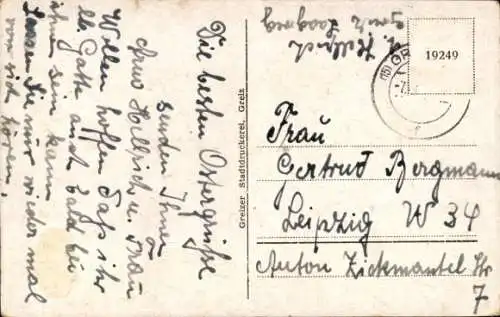 Die besten Ostergrüße
senden Ihnen
Arno Hellrich u. Frau
Wollen hoffen daß ihr
lb. Gatte auch bald bei
ihnen sein kann
Lassen Sie nur wieder mal
von sich hören.
Greizer Stadtdruckerei, Greiz
Greiz
19249
(15) GR
Frau
Gertrud Bergmann
Leipzig W 34
Anton Zickmantel Str
7